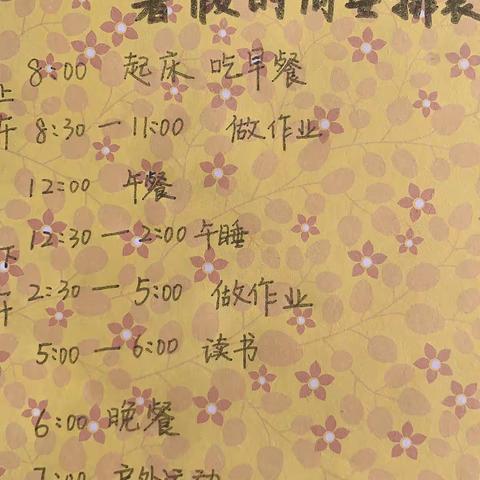 暑假时间安排表
上午
8:00 起床 吃早餐
8:30 — 11:00 做作业
12:00 午餐
下午
12:30 — 2:00 午睡
2:30 — 5:00 做作业
5:00 — 6:00 读书
6:00 晚餐
7:00 户外运动